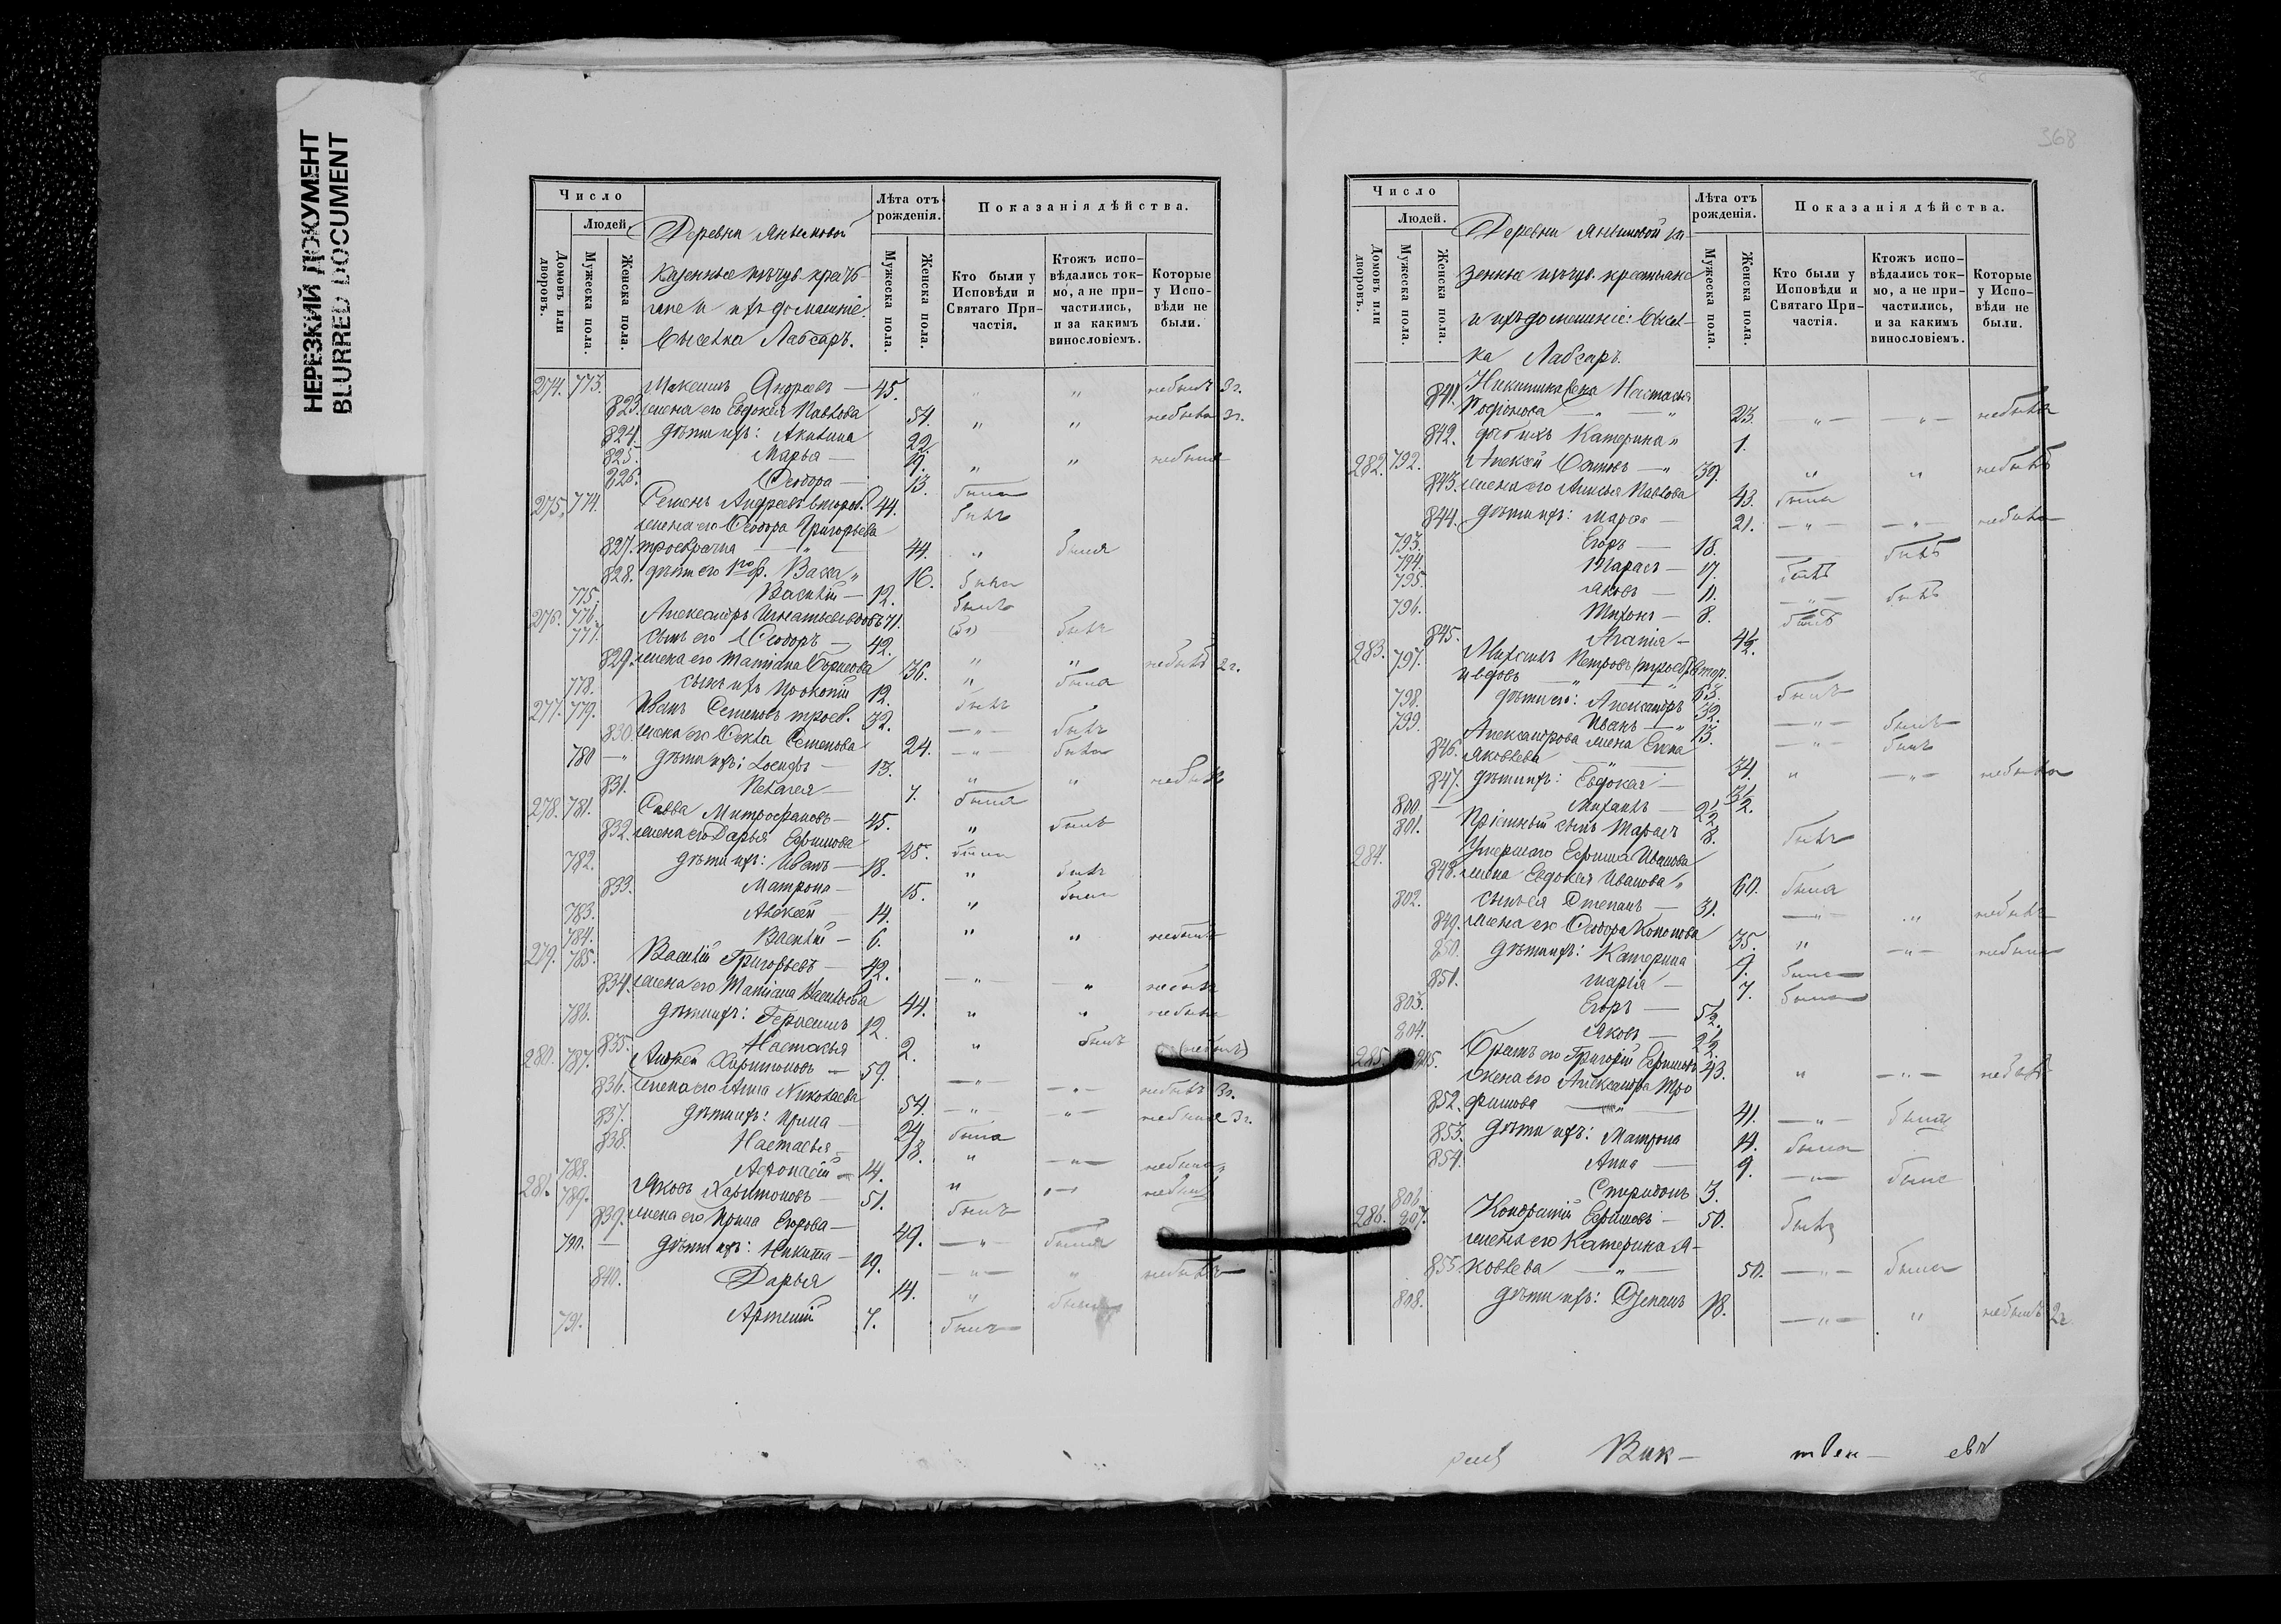 НЕРЕЗКИЙ ДОКУМЕНТ
BLURRED DOCUMENT
Число
Людей
Домовъ или дворовъ.
Мужеска пола.
Женска пола.
Деревни Янъиковой
казенные изъ чув. кресть
яне и ихъ домашніе.
Выселка Лабсаръ.
Лѣта отъ рожденія.
Мужеска пола.
Женска пола.
Показанія дѣйства.
Кто были у Исповѣди и Святаго Причастія.
Ктожъ исповѣдались токмо, а не причастились, и за какимъ винословіемъ.
Которые у Исповѣди не были.
274. 773. Максимъ Андреевъ — 45. " " небылъ 3 г.
823. жена его Евдокія Павлова 54. " " небыла 3 г.
824. дѣти ихъ: Акилина 22. " " небыла
825. Марья — 19.
826. Ѳеодора — 13. была
275. 774. Семенъ Андреевъ второб. 44. былъ
жена его Ѳеодора Григорьева
827. троебрачна — " — 44. " была
828. дѣти его Васса " 16. была
775. Василій — 12. былъ
276. 776. Александръ Игнатьевъ вдовъ 71. былъ
777. сынъ его Ѳеодоръ — 42. " " небылъ 2 г.
829. жена его Татіана Борисова 36. " была
778. сынъ ихъ Прокопій 12. былъ
277. 779. Иванъ Семеновъ троеб. 32. — " — былъ
830. жена его Ѳекла Семенова 24. — " — была
780 — " дѣти ихъ: Іосифъ — 13. " " небылъ
831. Пелагея — 7. была
278. 781. Савва Митрофановъ — 45. " былъ
832. жена его Дарья Ефимова 45. была
782. дѣти ихъ: Иванъ — 18. " былъ
833. Матрона — 15. " была
783. Алексѣй — 14. " " небылъ
784. Василій — 6.
279. 785. Василій Григорьевъ — 42. — " — " небылъ
834. жена его Татіана Васильева 44. " " небыла
786. дѣти ихъ: Герасимъ 12. " былъ (небылъ)
835. Настасья 2.
280. 787. Андрей Харитоновъ — 59. — " — " — небылъ 3 г.
836. жена его Анна Николаева 54. — " — — " — небыла 3 г.
837. дѣти ихъ: Ирина — 24. была
838. Настасья — 18. " — " — небыла
788. Аѳонасій — 14. " " — небылъ
281. 789. Яковъ Харитоновъ — 51. былъ
839. жена его Ирина Егорова — 49. — " — была
790. — дѣти ихъ: Никита — 19. — " — " небылъ —
840. Дарья 14. " была
791. Артемій 7. былъ
368
Число
Людей.
Домовъ или дворовъ.
Мужеска пола.
Женска пола.
Деревни Янъиковой ка-
зенные изъ чув. крестьяне
и ихъ домашніе: Высел-
ка Лабсаръ.
Лѣта отъ рожденія.
Мужеска пола.
Женска пола.
Показанія дѣйства.
Кто были у Исповѣди и Святаго Причастія.
Ктожъ исповѣдались токмо, а не причастились, и за какимъ винословіемъ.
Которые у Исповѣди не были.
Никитина жена Настасья
841. Родіонова — " — " 23. — " — " — небыла
842. дочь ихъ Катерина " 1.
282. 792. Алексѣй — " 39. " " небылъ
843. жена его Павлова 43. была
844. дѣти ихъ: Марѳа — 21. — " — — " — небыла
793. Егоръ — 18. — былъ
794. Тарасъ — 17. былъ
795. Яковъ — 11. — " — былъ
796. Тихонъ — 8. былъ
845. Агапія — 4½.
283. 797. Михаилъ Петровъ
и вдовъ — " — " 63. былъ
798. дѣти его: Александръ 32. — " — былъ
799. Иванъ — " 13. — " — былъ
Александрова жена Елена
846. Яковлева — " — 34. " — " — небыла
847. дѣти ихъ: Евдокія — 3½.
800 — Михаилъ — 2½
801. Пріемный сынъ Тарасъ 8. былъ
284. Умершаго Ефима Иванова
848. жена Евдокія Иванова " 60. была
802. сынъ ея Степанъ — 31. — " — " небылъ
849. жена его Ѳеодора Кононова 35. " — " — небыла
850. дѣти ихъ: Катерина 9. была
851. Марія — 7. была
803. Егоръ — 5½.
804. Яковъ — 2½.
285. 805. Братъ его Григорій Ефимовъ 43. " — " — небылъ
жена его Александра Тро
852. фимова — " — 41. — " — была
853. дѣти ихъ: Матрона 14. была
854. Анна — 9. — " — была
806. Спиридонъ 3.
286. 807. Кондратій Ефимовъ — 50. былъ
жена его Катерина Я-
855. ковлева — " — 50. — " — была
808. дѣти ихъ: Степанъ 18. — " — " небылъ 2 г.
Вик —
твен —
евъ